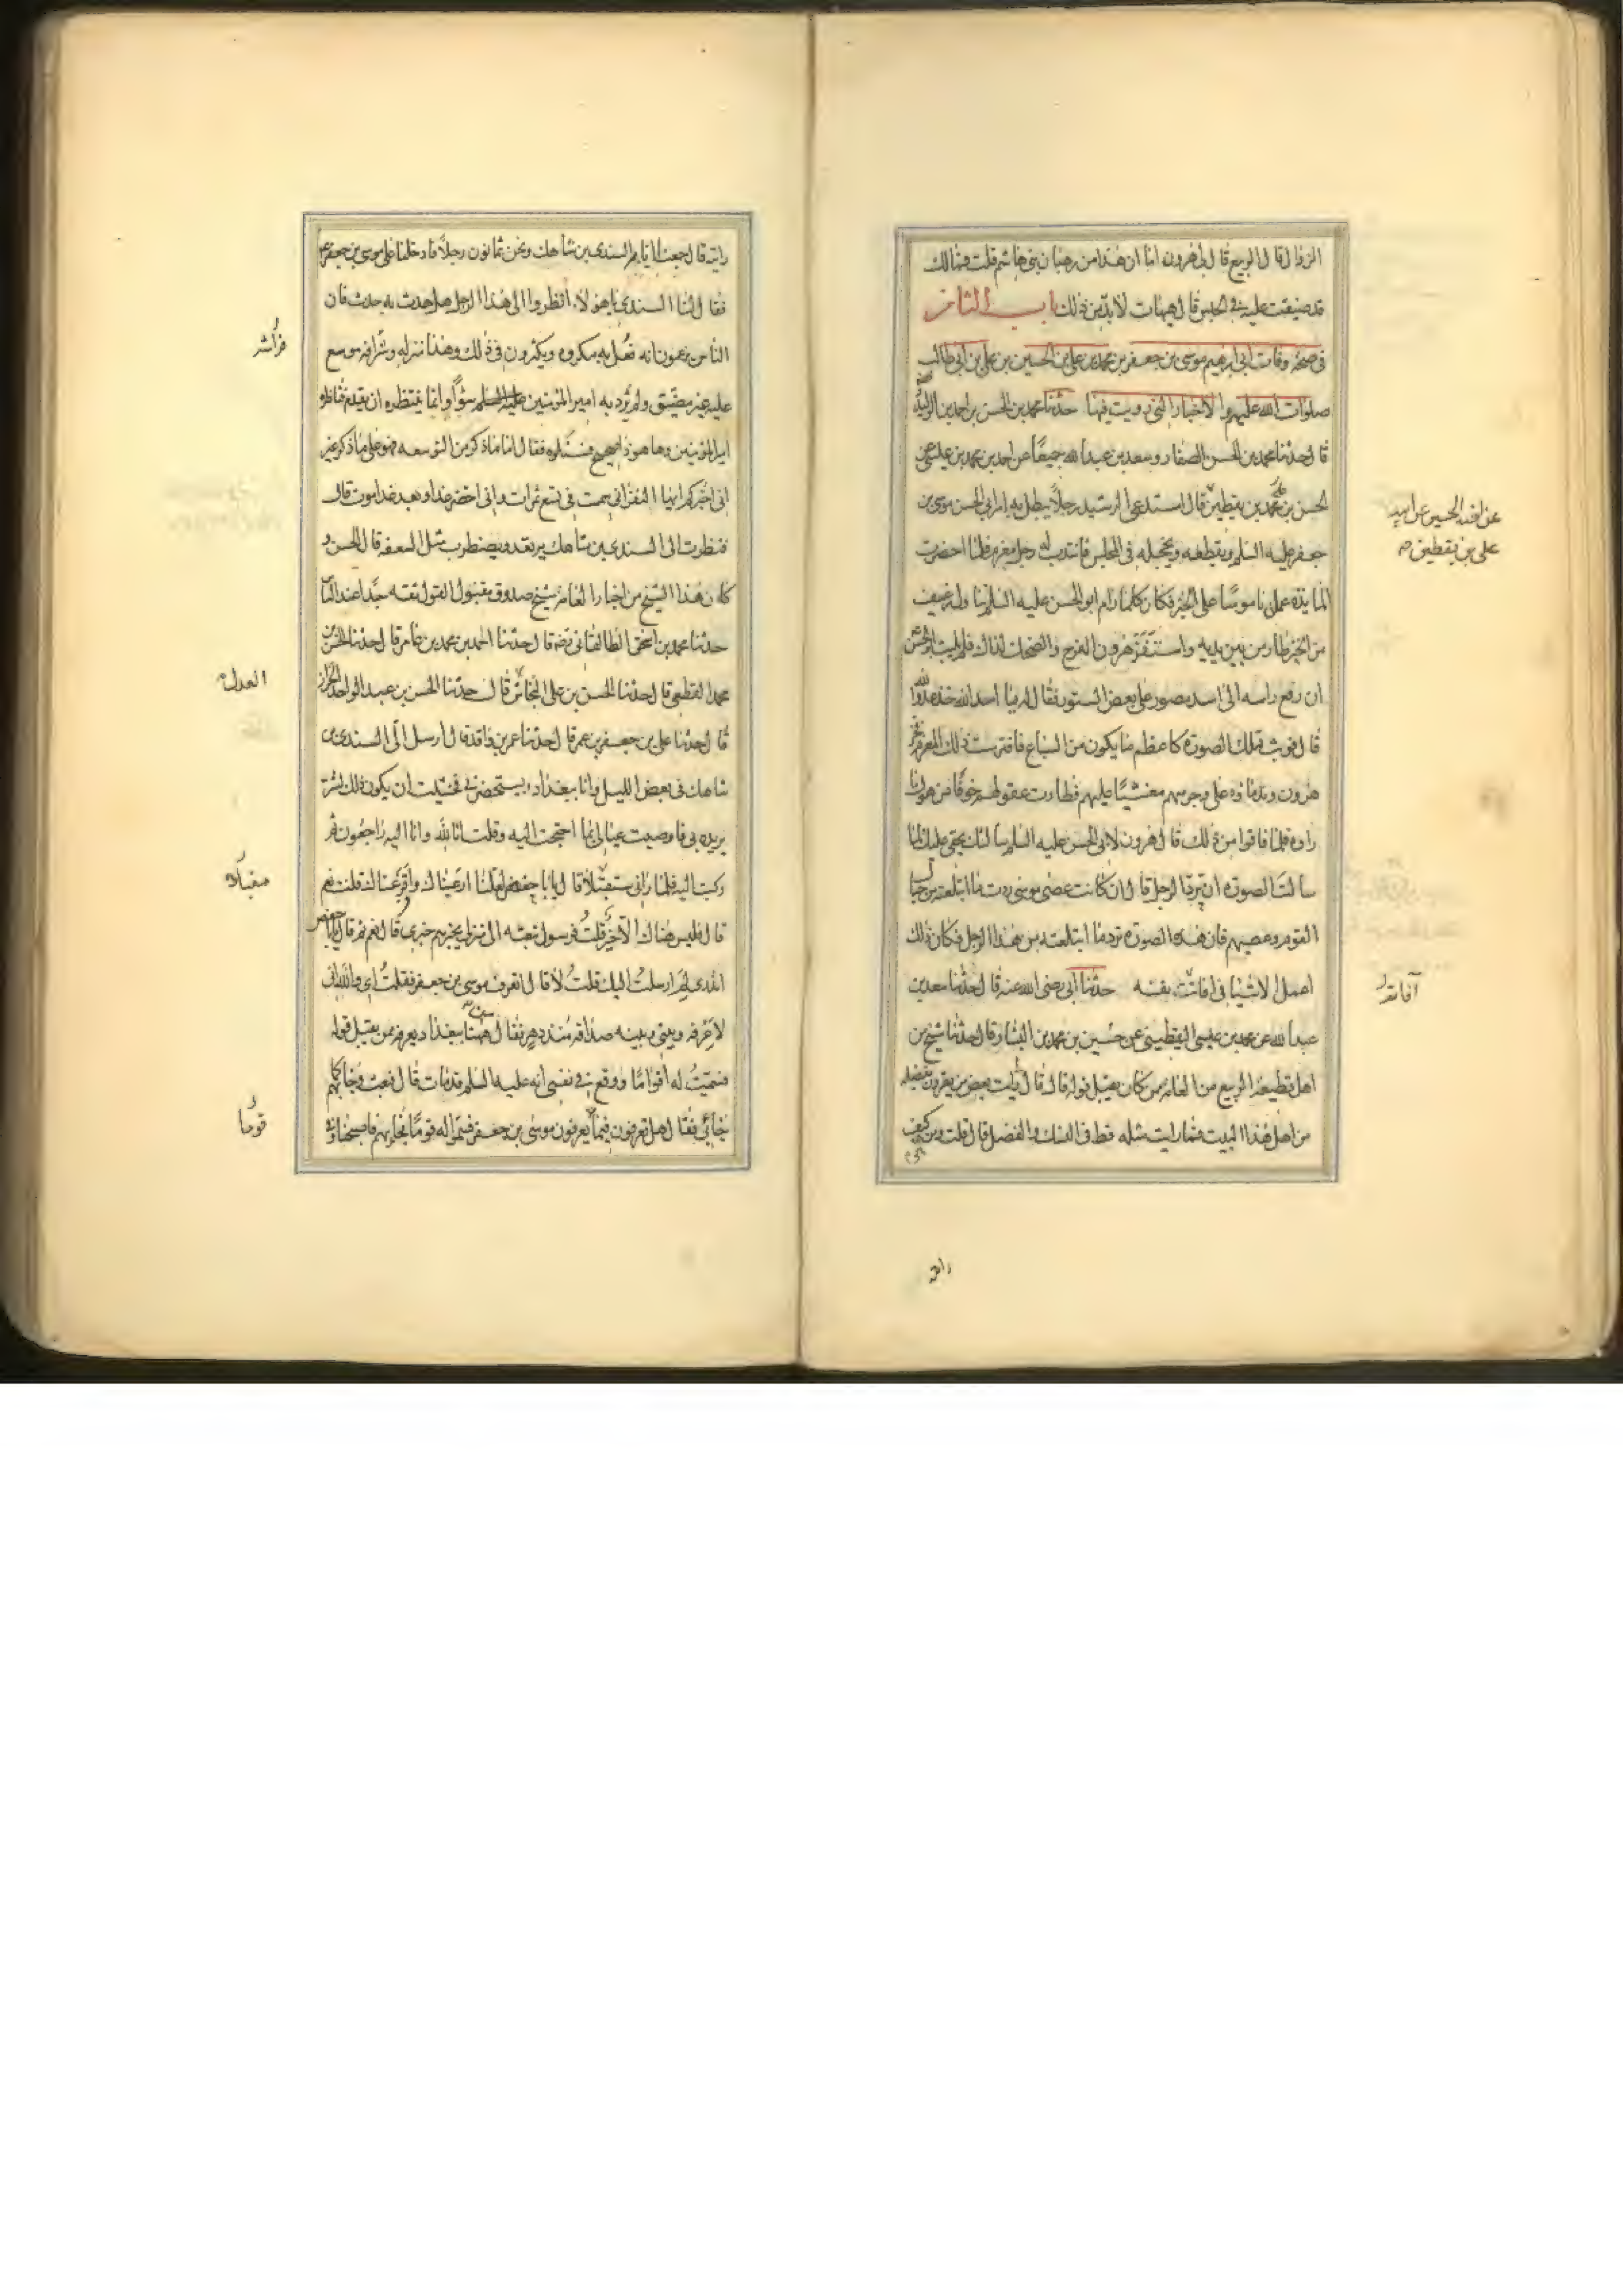 الزوال قال الربيع قال لي هرون اما ان هذا من رهبان بني هاشم قلت فمالك
قد ضيقت عليه في الحبس قال هيهات لا بد من ذلك باب الثامن
في صحة وفات ابي ابرهيم موسى بن جعفر بن محمد بن علي بن الحسين بن علي بن ابي طالب
صلوات الله عليهم والاخبار التي رويت فيها حدثنا محمد بن الحسن بن احمد بن الوليد رضه
قال حدثنا محمد بن الحسن الصفار وسعد بن عبدالله جميعا عن احمد بن محمد بن عيسى عن
الحسن بن محمد بن يقطين قال استدعى الرشيد رجلا يبطل به امر ابي الحسن موسى بن
جعفر عليه السلم ويقطعه ويخجله في المجلس فانتدب له رجل معزم فلما احضرت
المايدة عمل ناموسا على الخبز فكان كلما رام ابو الحسن عليه السلم تناول رغيف
من الخبز طار من بين يديه واستفز هرون الفرح والضحك لذلك فلم يلبث ابو الحسن
ان رفع راسه الى اسد مصور على بعض الستور فقال له يا اسد الله خذ عدو الله
قال فوثب تلك الصورة كاعظم ما يكون من السباع فافترست ذلك المعزم فخر
هرون وندماؤه على وجوههم مغشيا عليهم فطارت عقولهم خوفا من هول ما
راوه فلما فاقوا من ذلك قال هرون لابي الحسن عليه السلم سالتك بحقي عليك لما
سالت الصورة ان ترد الرجل قال ان كانت عصى موسى ردت ما ابتلعته من حبال
القوم وعصيهم فان هذه الصورة ترد ما ابتلعته من هذا الرجل فكان ذلك
اعمل الاشيا في افاتت نفسه حدثنا ابي رضى الله عنه قال حدثنا سعد بن
عبد الله عن محمد بن عيسى اليقطيني عن حسين بن محمد بن البشار قال حدثنا شيخ من
اهل قطيعة الربيع من العامة ممن كان يقبل قوله قال قال رايت بعض من يقرون بفضله
من اهل هذا البيت فما رايت مثله قط في النسك والفضل قال قلت من وكيف
عن اخيه الحسين عن ابيه
علي بن يقطين
رايته
رايته قال جمعنا ايام السندي بن شاهك ونحن ثمانون رجلا فادخلنا على موسى بن جعفر
فقال لنا السندي يا هولاء انظروا الى هذا الرجل هل حدث به حدث فان
الناس يزعمون انه فعل به مكروه ويكثرون في ذلك وهذا منزله وفراشه موسع
عليه غير مضيق ولم يرد به امير المؤمنين سؤا وانما ينتظره ان يقدم فيناظره
امير المؤمنين وها هو ذا صحيح فسئلوه فقال اما ما ذكر من التوسعه فهو على ما ذكر غير
اني اخبركم ايها النفر اني سمت في تسع تمرات واني اخضر غدا وبعد غد اموت قال
فنظرت الى السندي بن شاهك يرتعد ويضطرب مثل السعفه قال الحسن و
كان هذا الشيخ من اخيار العامة شيخ صدوق مقبول القول ثقه جدا عند الناس
حدثنا محمد بن ابرهيم بن اسحق الطالقاني رضه قال حدثنا احمد بن محمد بن عامر قال حدثنا الحسن بن
محمد القطعي قال حدثنا الحسن بن علي النخاس قال حدثنا الحسن بن عبد الواحد الخزاز
قال حدثنا علي بن جعفر بن عمر قال حدثنا عمر بن واقد قال ارسل الى السندي بن
شاهك في بعض الليل وانا ببغداد يستحضرني فخشيت ان يكون ذلك لشر
يريده بي فاوصيت عيالي بما احتجت اليه وقلت انا لله وانا اليه راجعون ثم
ركبت اليه فلما راني مقبلا قال يابا حفص لعلنا ارعبناك وافزعناك قلت نعم
قال فليس هناك الا خير قلت فرسول تبعثه الى منزلي يخبرهم خبري قال نعم ثم قال يابا حفص
اتدري لم ارسلت اليك قلت لا قال اتعرف موسى بن جعفر فقلت اي والله اني
لاعرفه وبيني وبينه صداقه منذ دهر فقال من ههنا ببغداد يعرفه ممن يقبل قوله
فسميت له اقواما ووقع في نفسي انه عليه السلم قد مات قال فبعث وجا بهم كما
جا بي فقال هل تعرفون قوما يعرفون موسى بن جعفر فسموا له قوما فجا بهم فاصبحنا ونحن
العدل
مقبلا
قوما